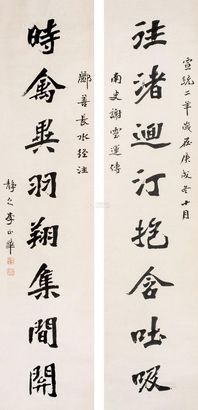 宣統二年歲在庚戌冬十月
往渚迴汀抱含吐吸
南史謝靈運傳
酈善長水經注
時禽異羽翔集間關